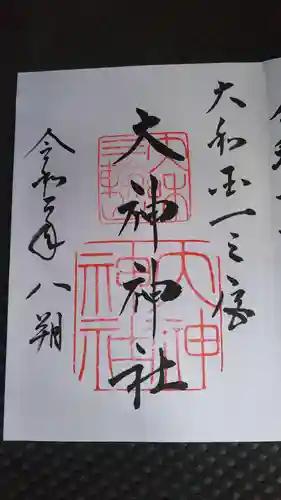 大和国一之宮
大神神社
令和二年八朔
大神
神社